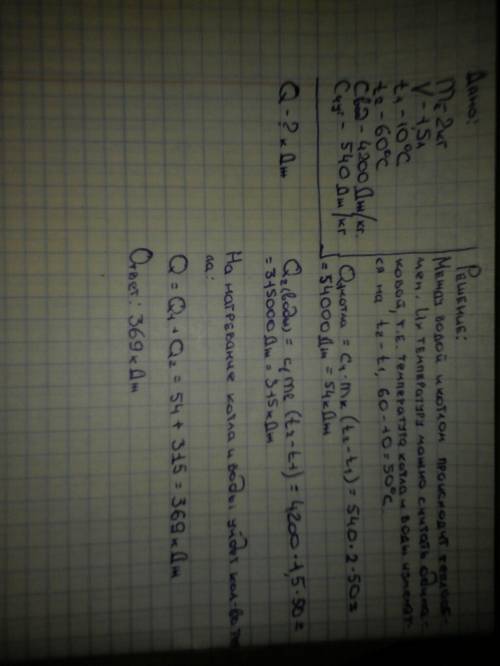 Дано:
m = 2кг
V - 1,5л
t1 - 10°C
t2 - 60°C
Cвод - 4200 Дж/кг.
Cчуг - 540 Дж/кг
Q - ? кДж
Решение:
Между водой и котлом происходит теплооб-
мен. Их температуру можно считать одина-
ковой, т.е. температура котла и воды изменит-
ся на t2 - t1, 60 - 10 = 50°C
Q1котла = C1 · mк (t2 - t1) = 540 · 2 · 50 =
= 54000Дж = 54кДж
Q2(воды) = C1 m2 (t2 - t1) = 4200 · 1,5 · 50 =
= 315000Дж = 315кДж
На нагревание котла и воды уйдёт кол-во теп
ла:
Q = Q1 + Q2 = 54 + 315 = 369кДж
Ответ: 369кДж